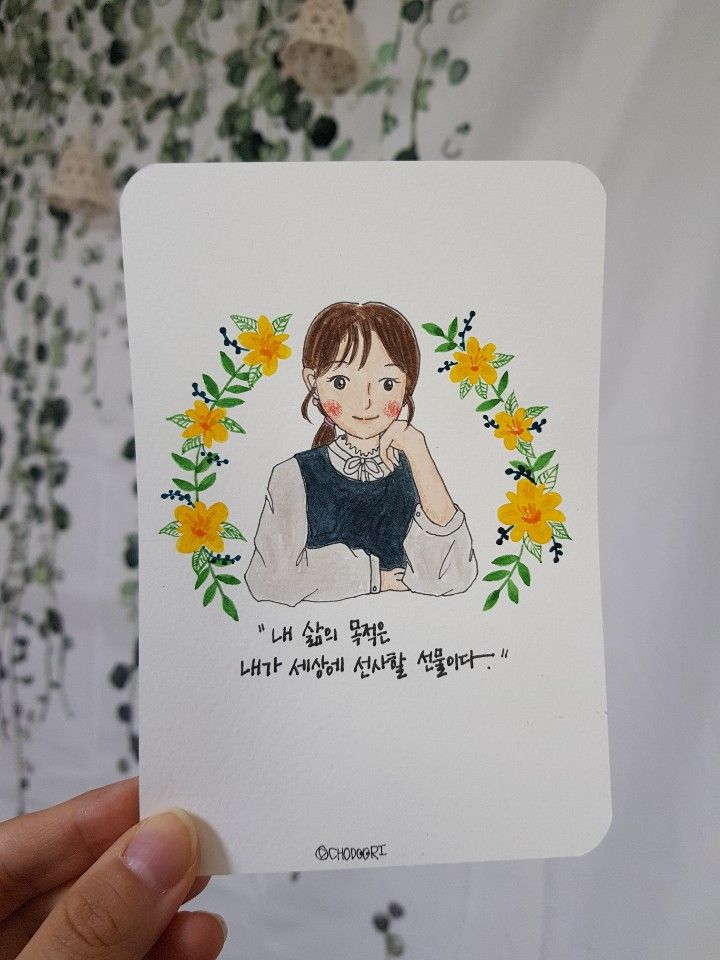 "내 삶의 목적은
내가 세상에 선사할 선물이다."
©CHODOORI